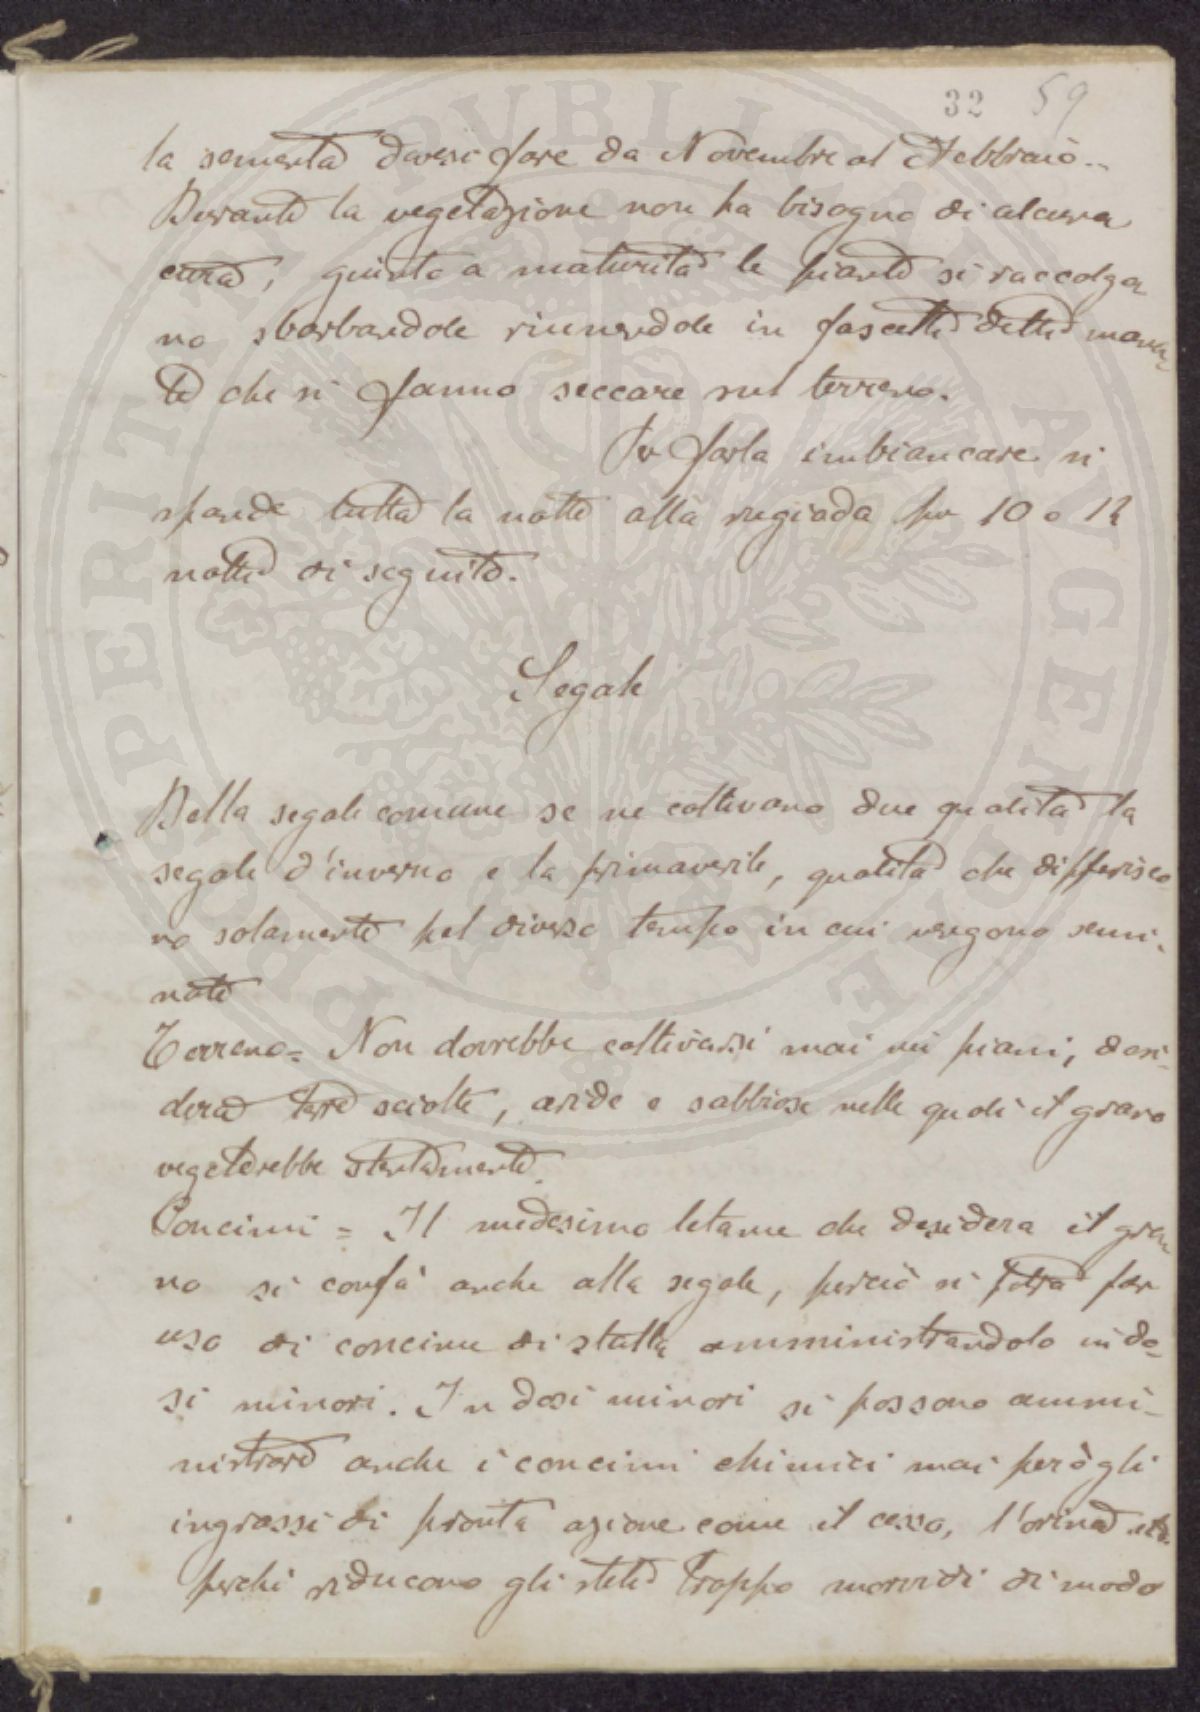 32 59
la sementa devesi fare da Novembre al Febbraio..
Durante la vegetazione non ha bisogno di alcuna
cura, giunte a maturità le piante si raccolga
no sbarbandole riunendole in fascetti dette mana
te che si fanno seccare sul terreno.
Per farla imbiancare si
spande tutta la notte alla rugiada per 10 o 12
notte di seguito.
Segale
Della segale comune se ne coltivano due qualità la
segale d'inverno e la primaverile, qualità che differisco
no solamente pel diverso tempo in cui vengono semi-
nate
Terreno = Non dovrebbe coltivarsi mai nei piani, desi-
dera terre sciolte, aride e sabbiose nelle quali il grano
vegeterebbe stentamente.
Concimi = Il medesimo letame che desidera il gra
no si confà anche alla segale, perciò si potrà far
uso di concime di stalla amministrandolo in do-
si minori. In dosi minori si possono ammi-
nistrare anche i concimi chimici mai però gli
ingrassi di pronta azione come il cesso, l'orina etc.
perchè riducono gli steli troppo morvidi di modo
PROPERITATI PVBLICAE AVGENDAE